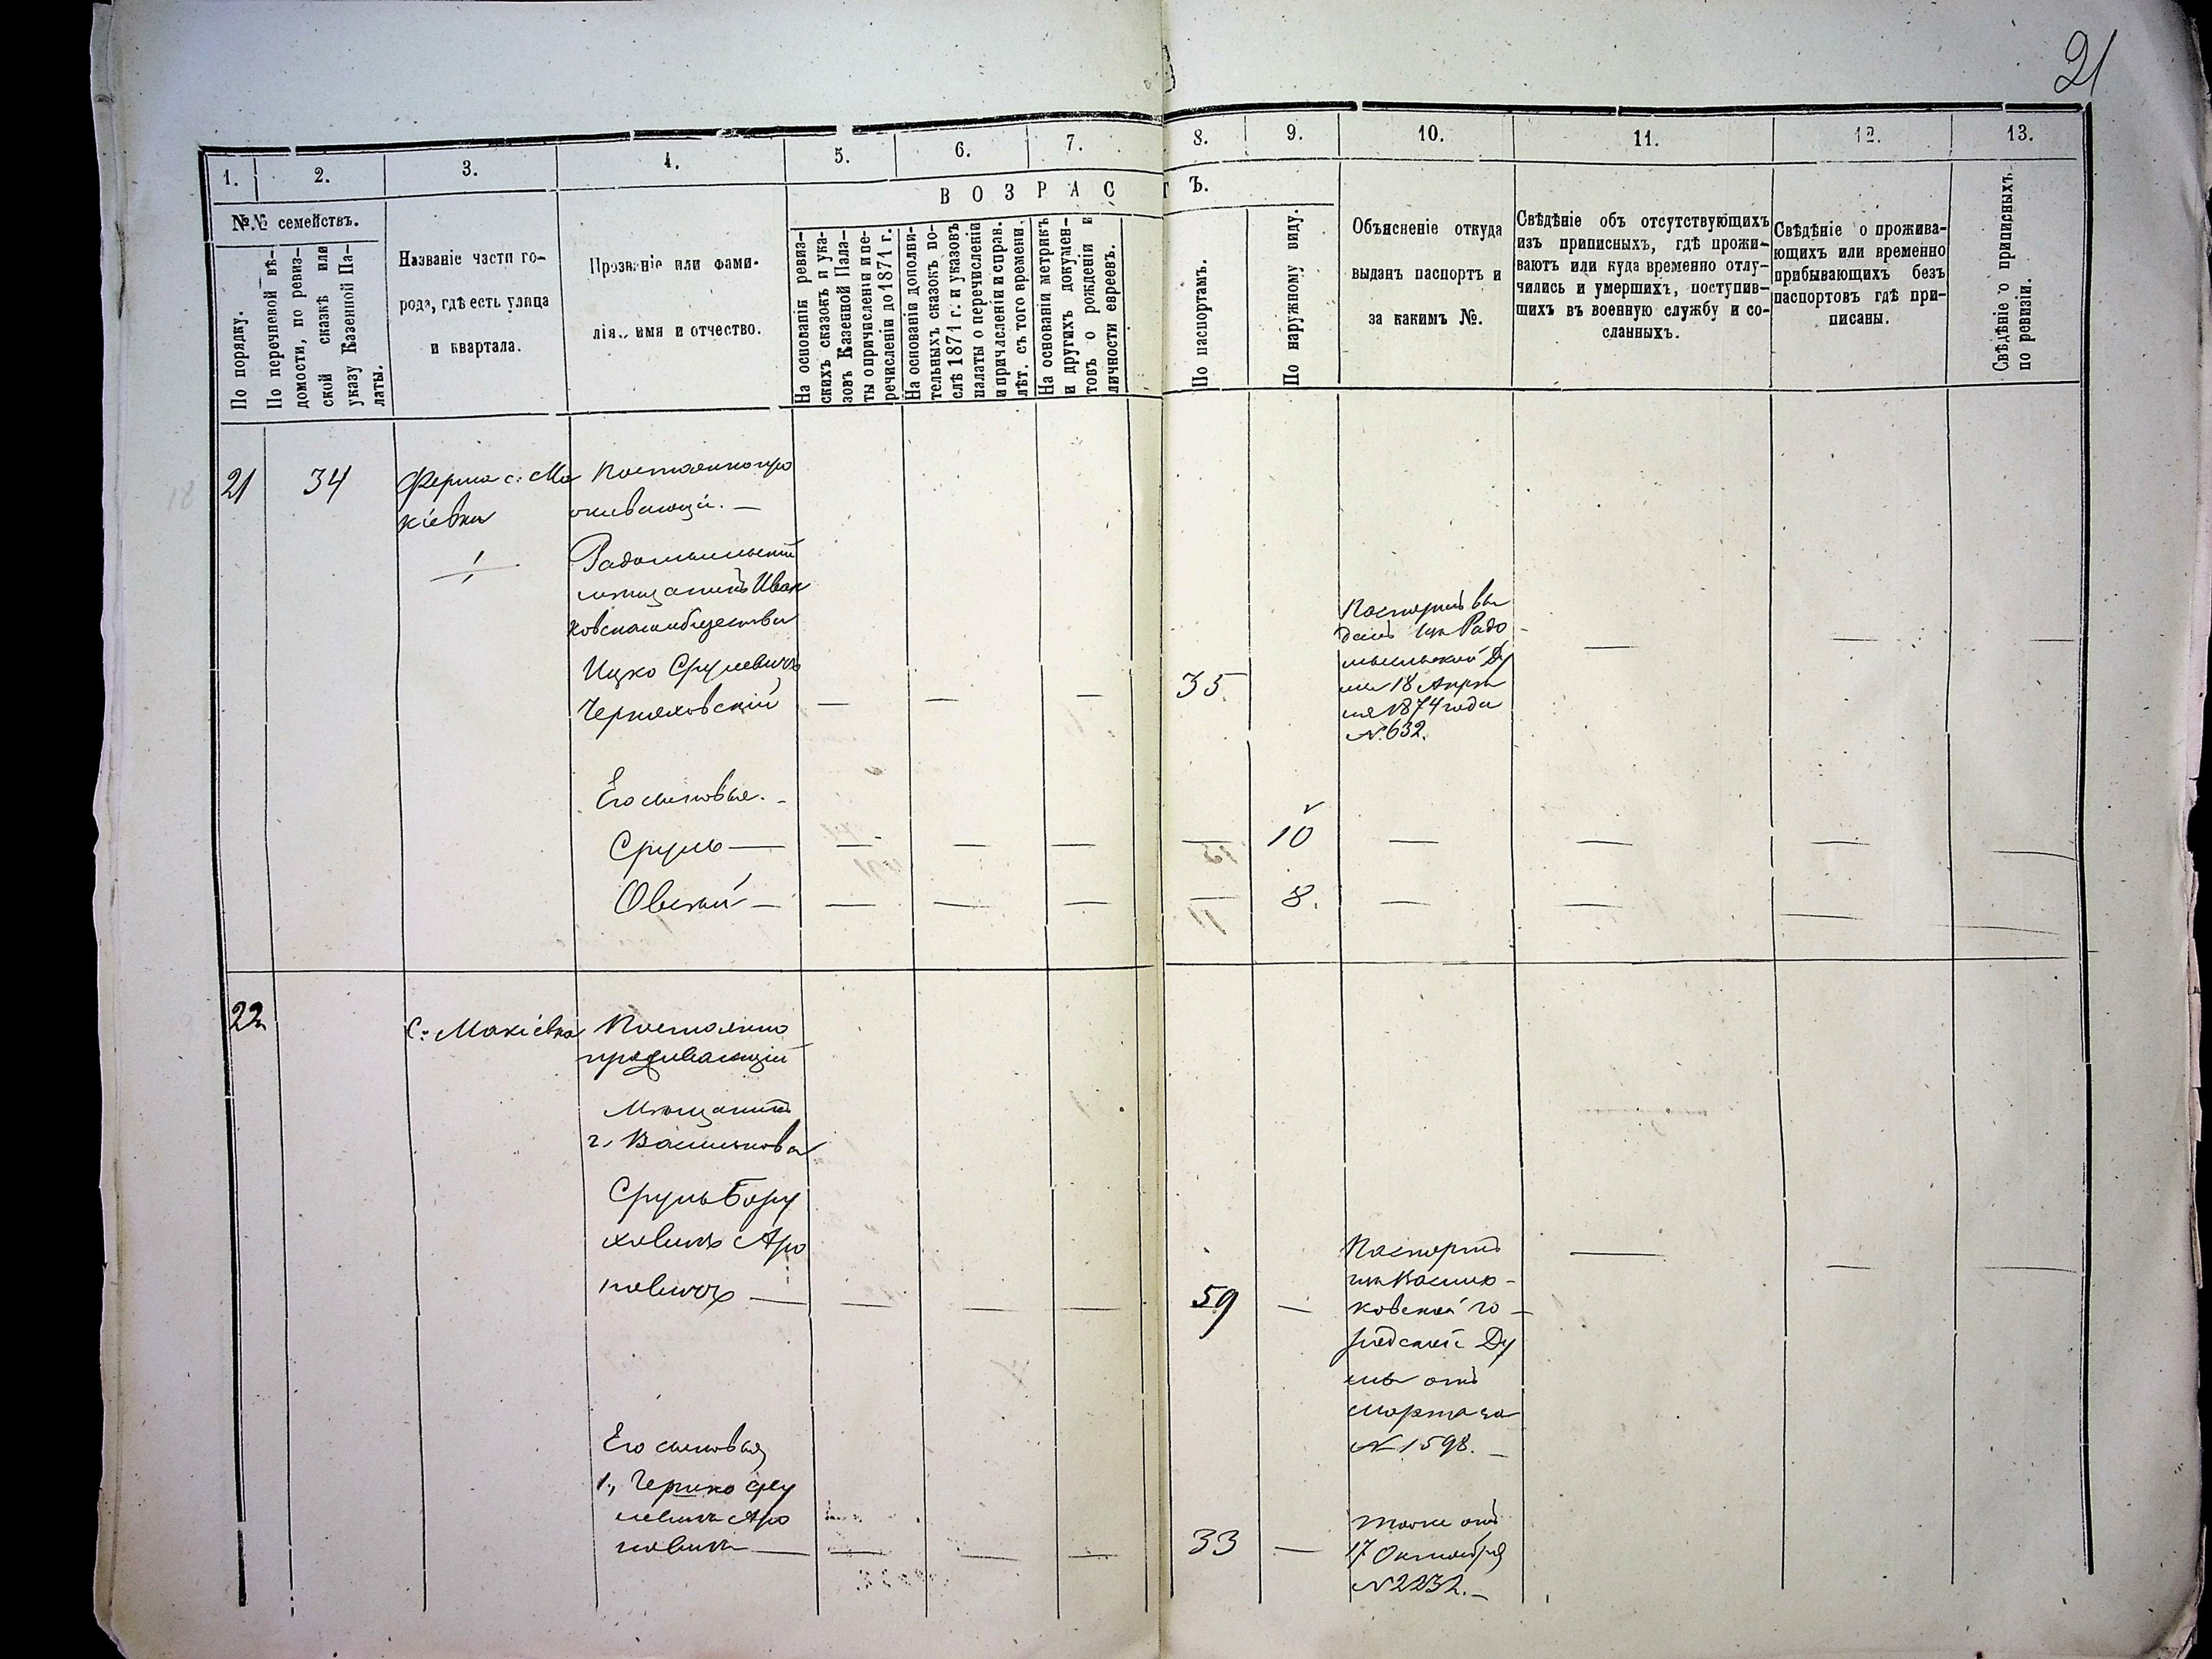 21
1.
2.
3.
4.
5.
6.
7.
8.
9.
10.
11.
12.
13.
№№ семействъ.
В О З Р А С Т Ъ.
По порядку.
По перечневой вѣ-
домости, по ревиз-
ской сказкѣ или
указу Казенной Па-
латы.
Названіе части го-
рода, гдѣ есть улица
и квартала.
Прозваніе или фами-
лія, имя и отчество.
На основаніи ревиз-
скихъ сказокъ и ука-
зовъ Казенной Пала-
ты о причисленіи и пе-
речисленіи до 1871 г.
На основаніи дополни-
тельныхъ сказокъ по-
слѣ 1871 г. и указовъ
палаты о перечисленіи
и причисленіи и справ.
лѣт. съ того времени.
На основаніи метрикъ
и другихъ докумен-
товъ о рожденіи и
личности евреевъ.
По паспортамъ.
По наружному виду.
Объясненіе откуда
выданъ паспортъ и
за какимъ №.
Свѣдѣніе объ отсутствующихъ
изъ приписныхъ, гдѣ прожи-
ваютъ или куда временно отлу-
чились и умершихъ, поступив-
шихъ въ военную службу и со-
сланныхъ.
Свѣдѣніе о прожива-
ющихъ или временно
прибывающихъ безъ
паспортовъ гдѣ при-
писаны.
Свѣдѣніе о приписныхъ
по ревизіи.
21
34
Ферма с. Ма
кіевки
Постоянно про
живающій. —
Радомысльскій
мѣщанинъ Иван
ковскаго общества
Ицко Срулевичъ
Черняховскій
35
Паспортъ вы
данъ изъ Радо
мысльской Ду
мы 18 Апрѣ
ля 1874 года
№ 632.
Его сыновья. -
Сруль —
10
Овсѣй —
8.
22
С. Макіевка
Постоянно
проживающій
Мѣщанинъ
г. Василькова
Сруль Бору
ховичъ Аро
новичъ —
59
Паспортъ
изъ Василь-
ковской го-
родской Ду
мы отъ
марта за
№ 1598. —
Его сыновья
1., Гершко Сру
левичъ Аро
новичъ —
33
тоже отъ
17 Октября
№ 2232. —